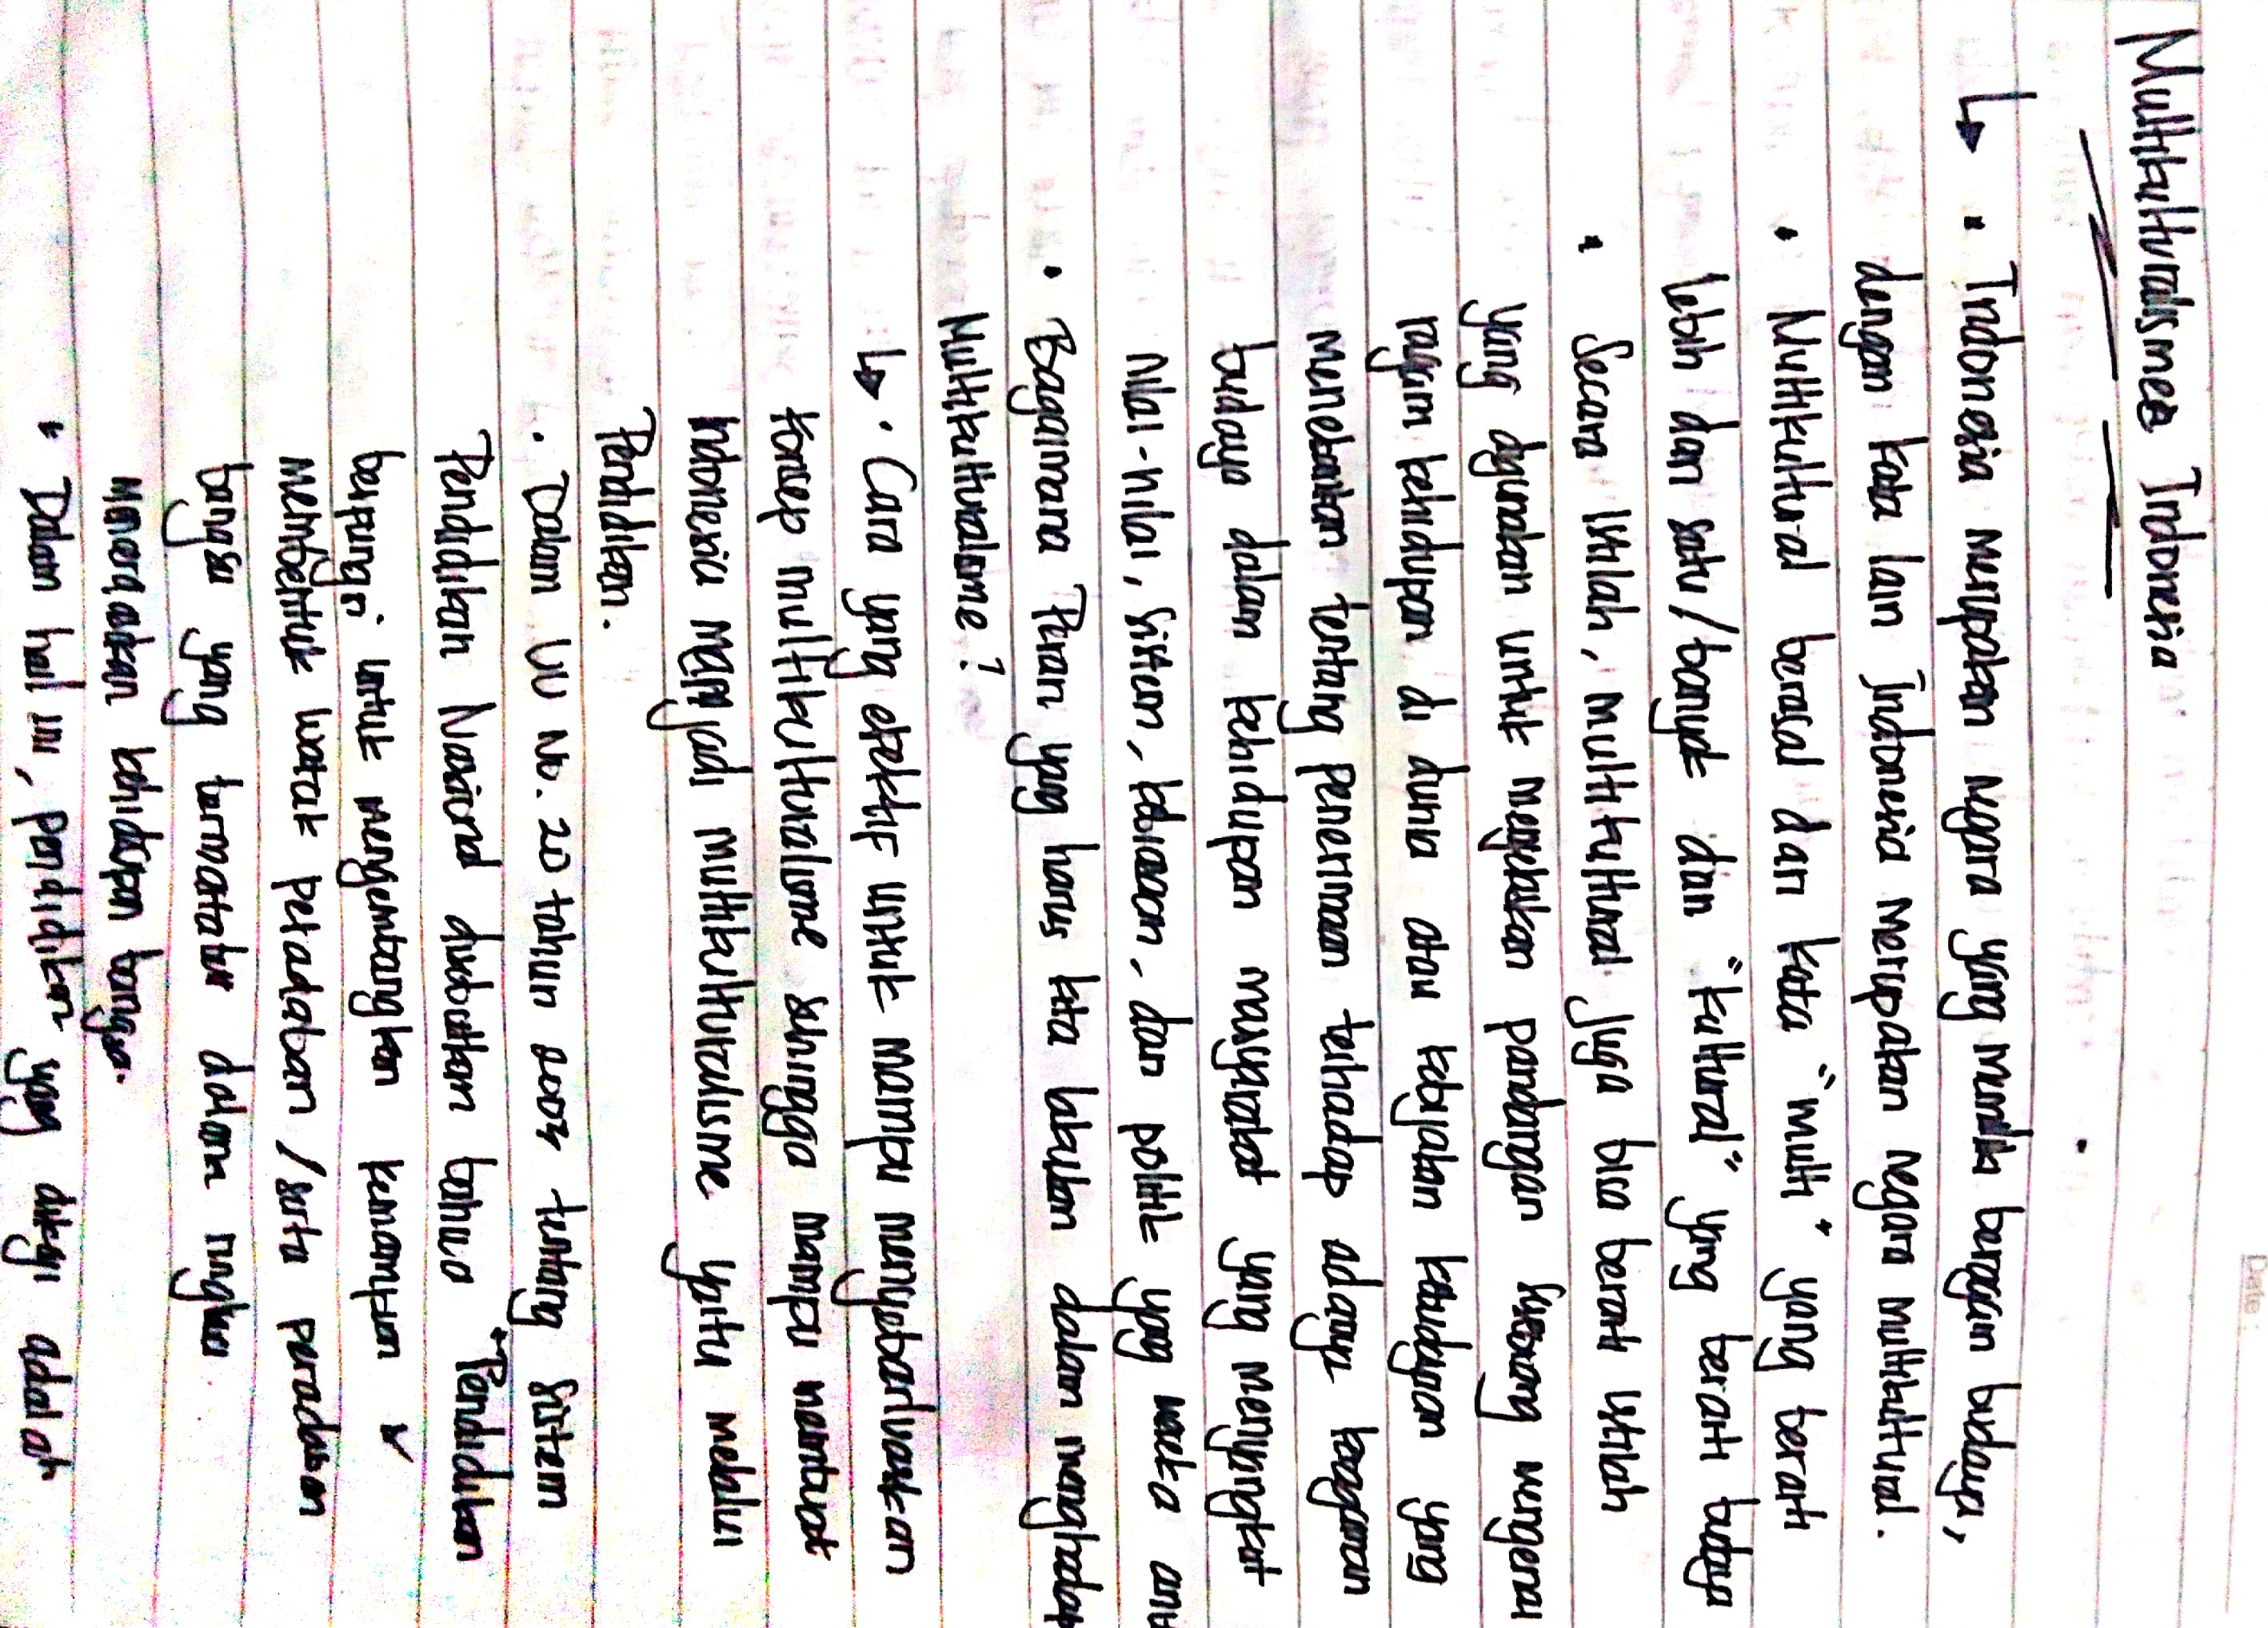 Multikulturalisme Indonesia
↳ • Indonesia merupakan negara yang memiliki beragam budaya,
dengan kata lain Indonesia merupakan negara multikultural.
• Multikultural berasal dari kata "multi" yang berarti
lebih dari satu/banyak dan "kultural" yang berarti budaya
• Secara istilah, multikultural juga bisa berarti istilah
yang digunakan untuk menjelaskan pandangan seseorang mengenai
ragam kehidupan di dunia atau kebijakan kebudayaan yang
menekankan tentang penerimaan terhadap adanya keagaman
budaya dalam kehidupan masyarakat yang menyangkut
nilai-nilai, sistem, kebiasaan, dan politik yang mereka anu
• Bagaimana Peran yang harus kita lakukan dalam menghadapi
Multikulturalisme?
↳ • Cara yang efektif untuk mampu menyebarluaskan
konsep multikulturalisme sehingga mampu membuat
Indonesia menjadi multikulturalisme yaitu melalui
Pendidikan.
• Dalam UU No. 20 tahun 2003 tentang Sistem
Pendidikan Nasional disebutkan bahwa "Pendidikan
berfungsi untuk mengembangkan kemampuan &
membentuk watak peradaban/serta peradaban
bangsa yang bermartabat dalam rangka
mencerdaskan kehidupan bangsa.
• Dalam hal ini, pendidikan yang dikaji adalah